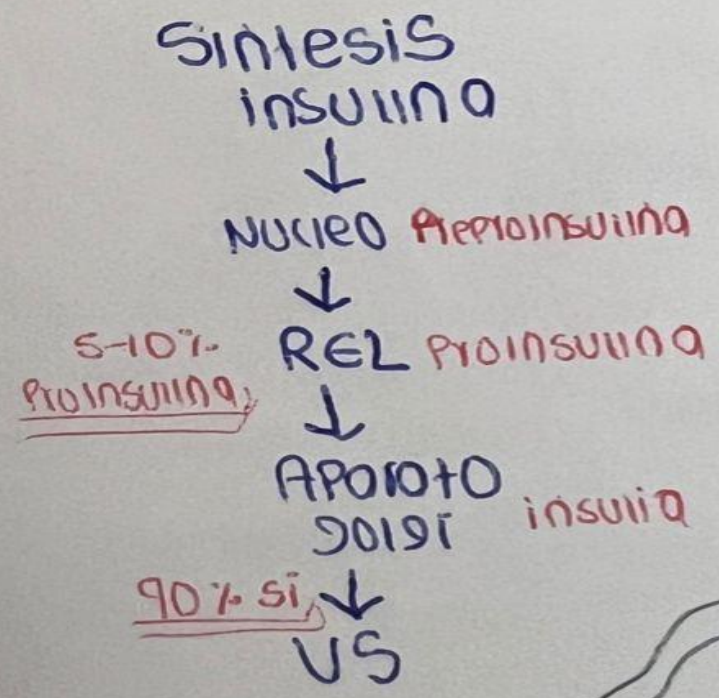 Sintesis
insulina
↓
Nucleo Preproinsulina
↓
5-10% REL Proinsulina
Proinsulina
↓
Aparato
golgi insulia
↓
90% si
VS